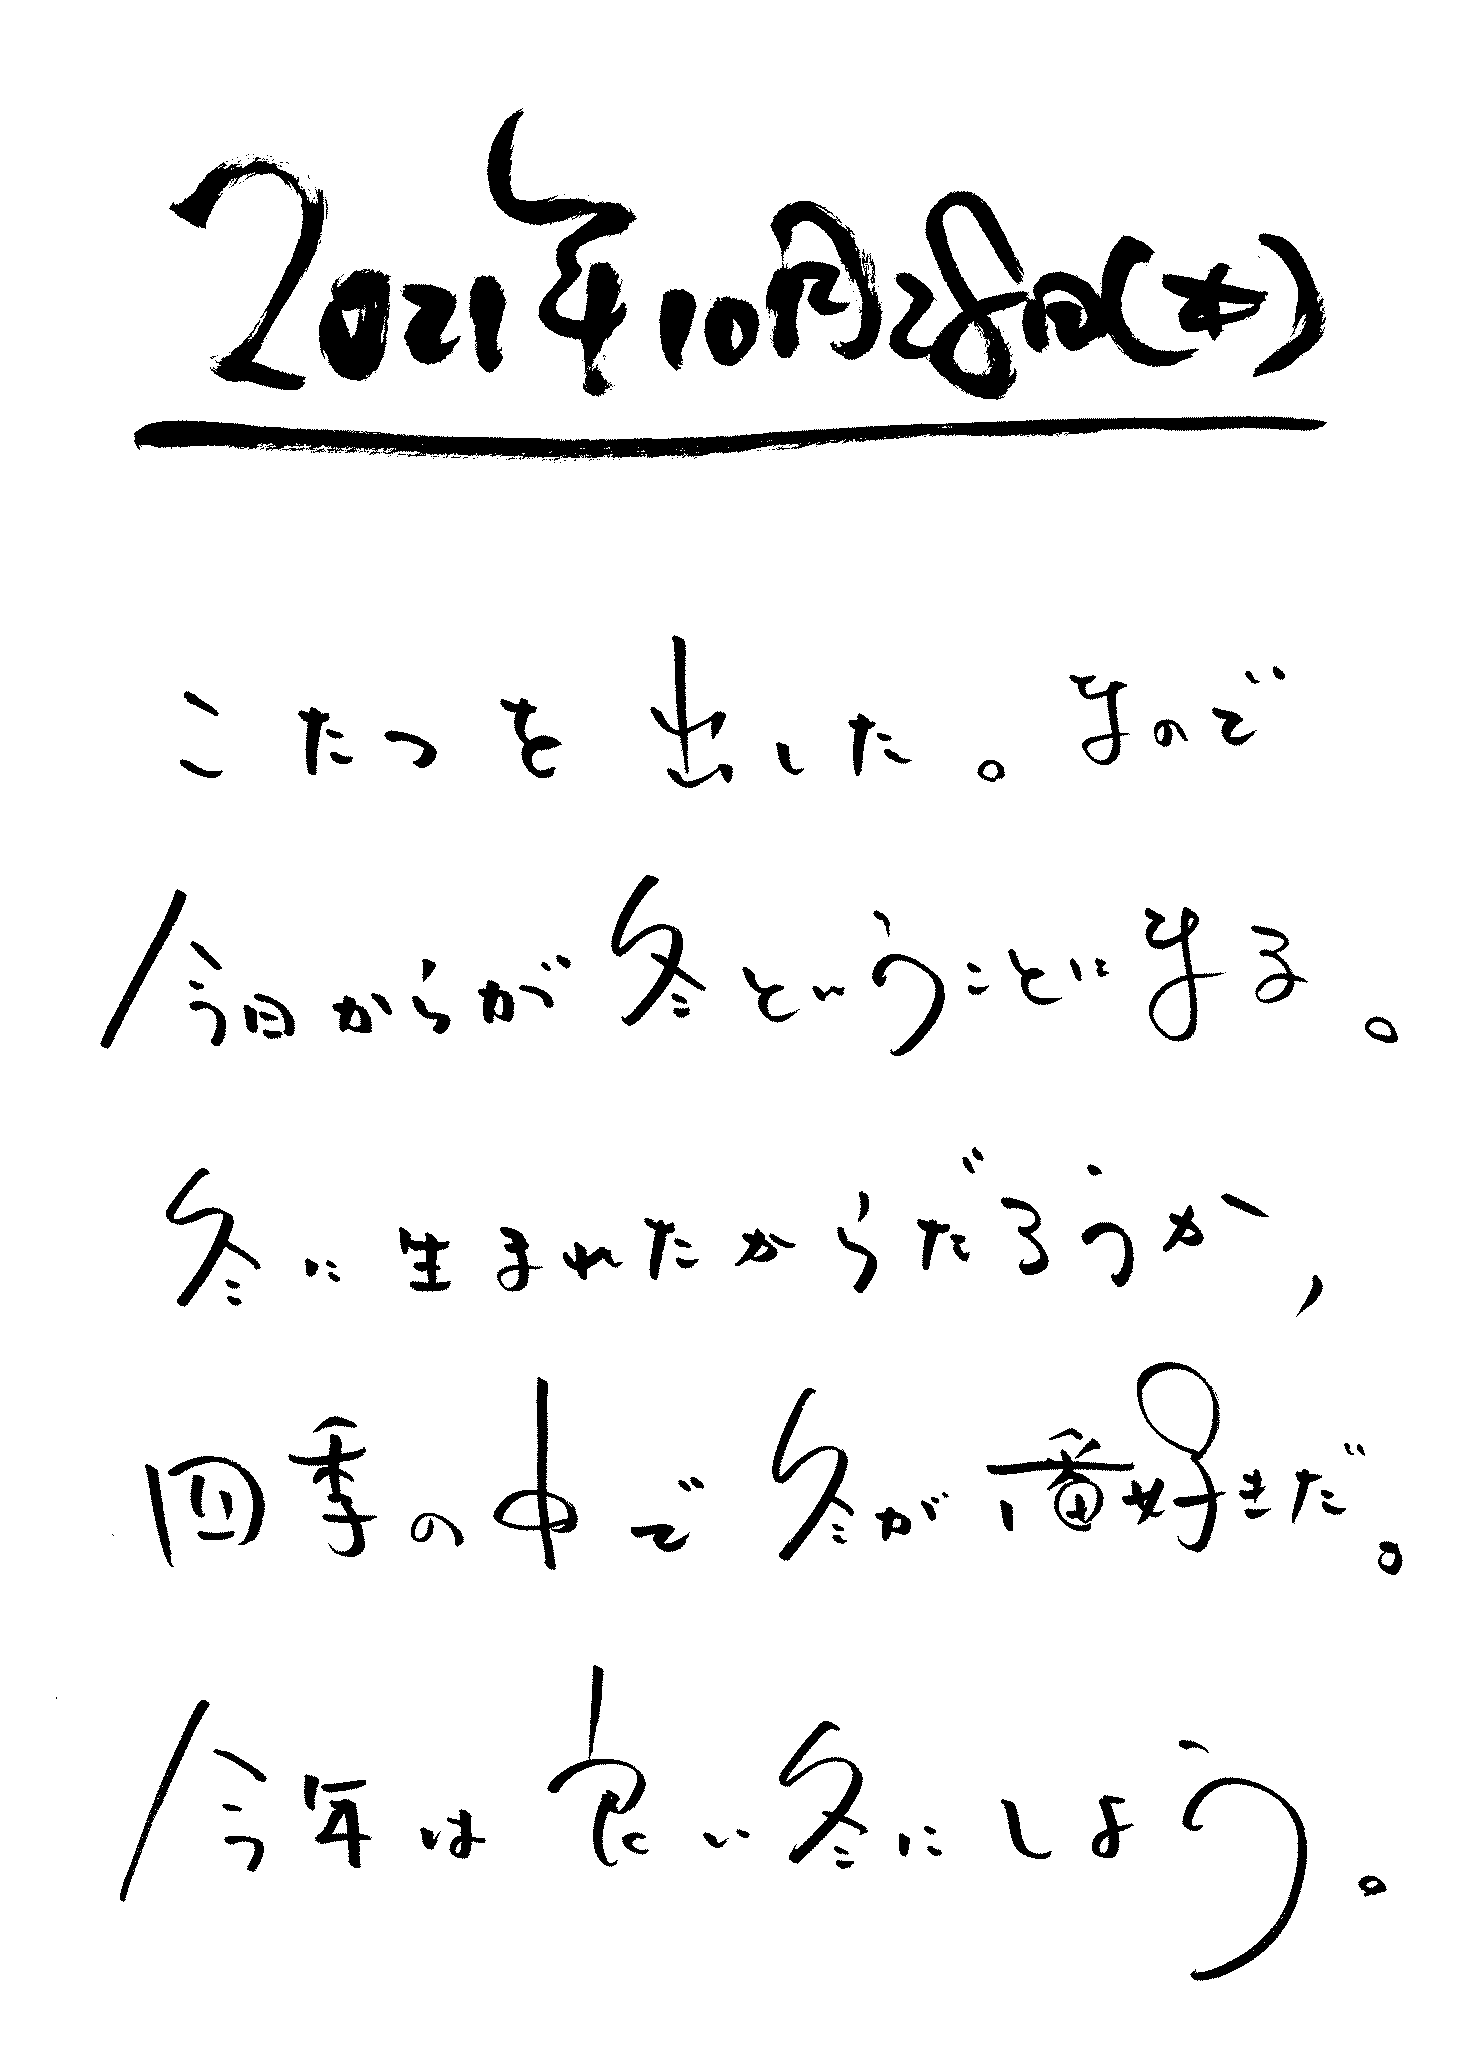 2021年10月28日(木)
こたつを出した。なので
今日からが冬ということになる。
冬に生まれたからだろうか、
四季の中で冬が一番好きだ。
今年は良い冬にしよう。